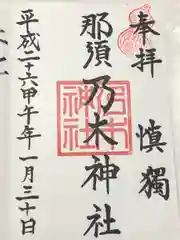 奉拝
慎獨
那須乃木神社
乃木
神社
平成二十六甲午年一月三十日